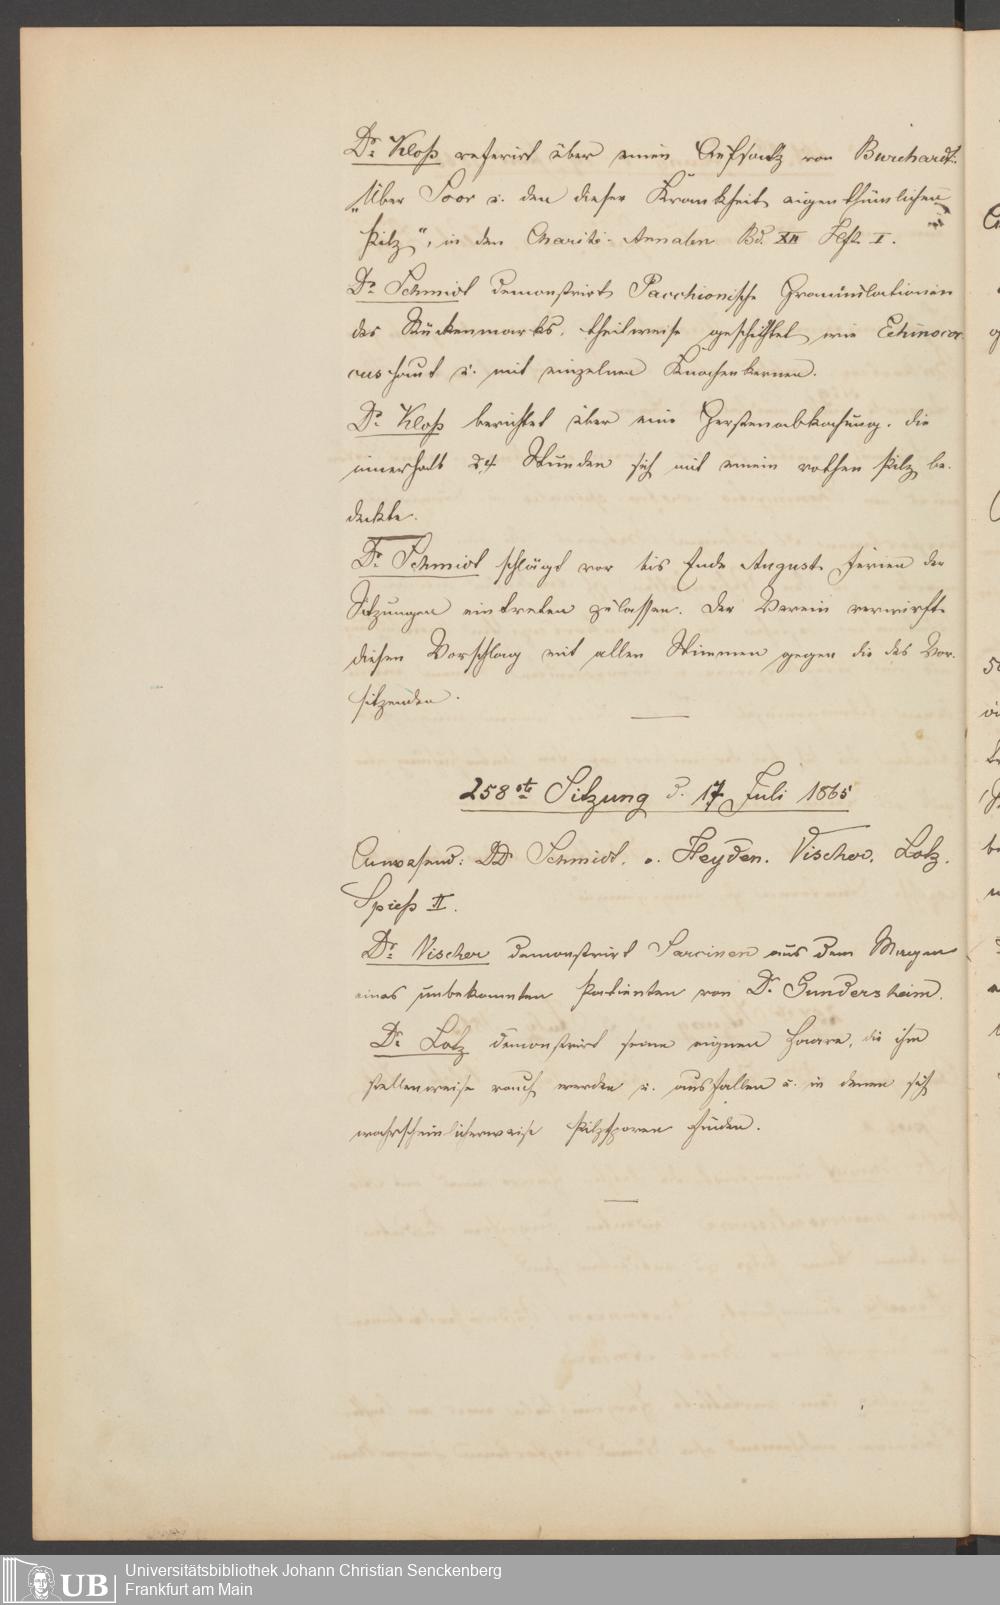 Dr. Kloß referirt über einen Aufsatz von Burchardt:
„Über Soor u. den dieser Krankheit eigenthümlichen
Pilz", in den Charité-Annalen Bd. XII Hft. I.
Dr. Schmidt demonstrirt Pacchionische Granulationen
des Rückenmarks, theilweise geschichtet wie Echinococ-
cushaut u. mit einzelnen Knochenkernen.
Dr. Kloß berichtet über eine Gerstenabkochung, die
innerhalb 24 Stunden sich mit einem rothen Pilz be-
deckte.
Dr. Schmidt schlägt vor bis Ende August Ferien der
Sitzungen eintreten zu lassen. Der Verein verwirft
diesen Vorschlag mit allen Stimmen gegen die des Vor-
sitzenden.
258ste Sitzung d. 17 Juli 1865
Anwesend: DD Schmidt, v. Heyden, Vischer, Lotz,
Spieß II.
Dr. Vischer demonstrirt Sarcinen aus dem Magen
eines unbekannten Patienten von Dr. Gundersheim.
Dr. Lotz demonstrirt seine eignen Haare, die ihm
stellenweise rauh werden u. ausfallen u. in denen sich
wahrscheinlicherweise Pilzsporen finden.
Universitätsbibliothek Johann Christian Senckenberg
Frankfurt am Main
UB